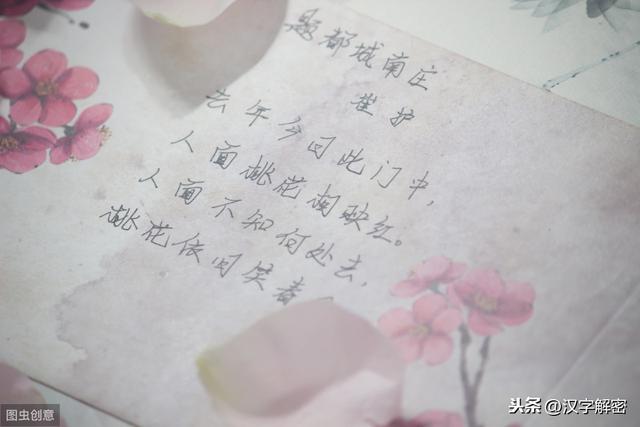 题都城南庄
崔护
去年今日此门中，
人面桃花相映红。
人面不知何处去，
桃花依旧笑春
图虫创意
头条 @汉字解密